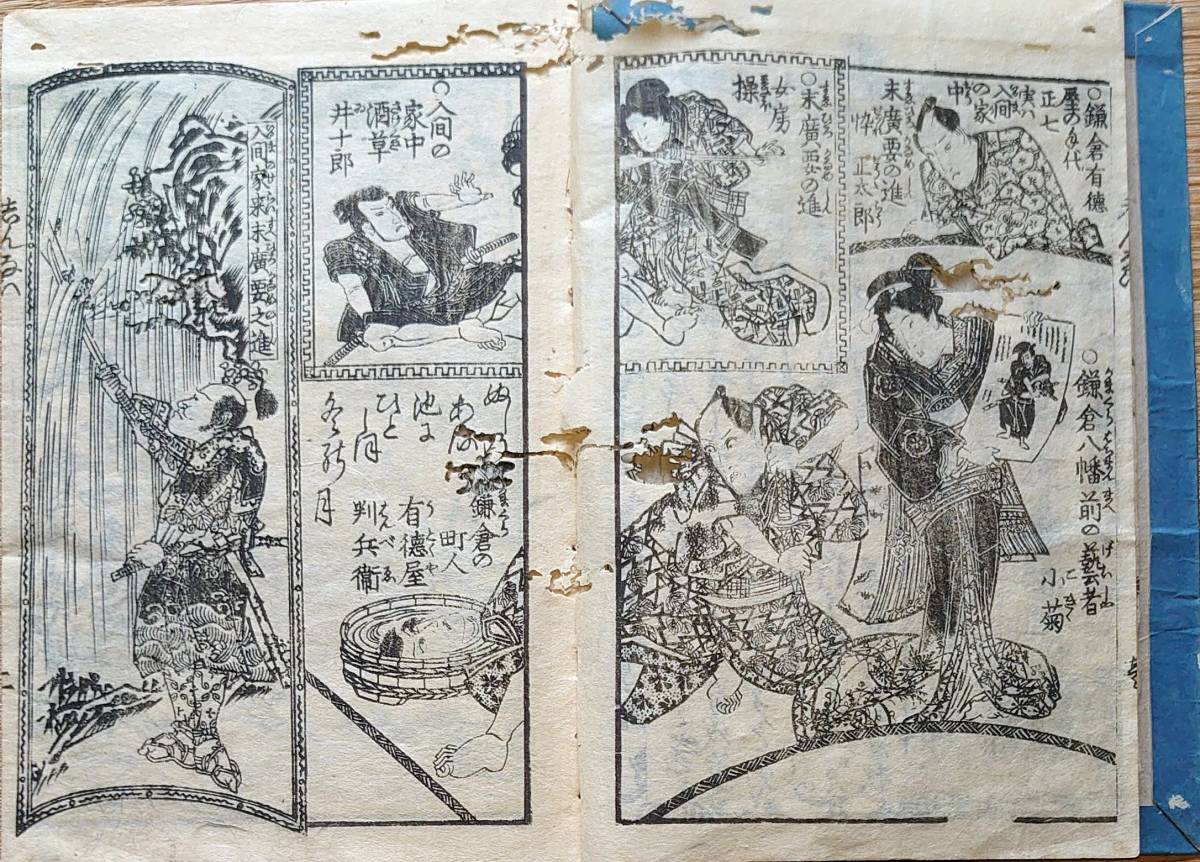 ○鎌倉有德
屋の手代
正七
実ハ
入間
の家
中
末廣要の進
忰 正太郎
○鎌倉八幡前の藝者
小菊
○末廣要の進
女房
操
○入間の
家中
酒草
井十郎
池に
ひと
し月
冬の月
鎌倉の
町人
有德屋
判兵衛
入間家来末廣要之進